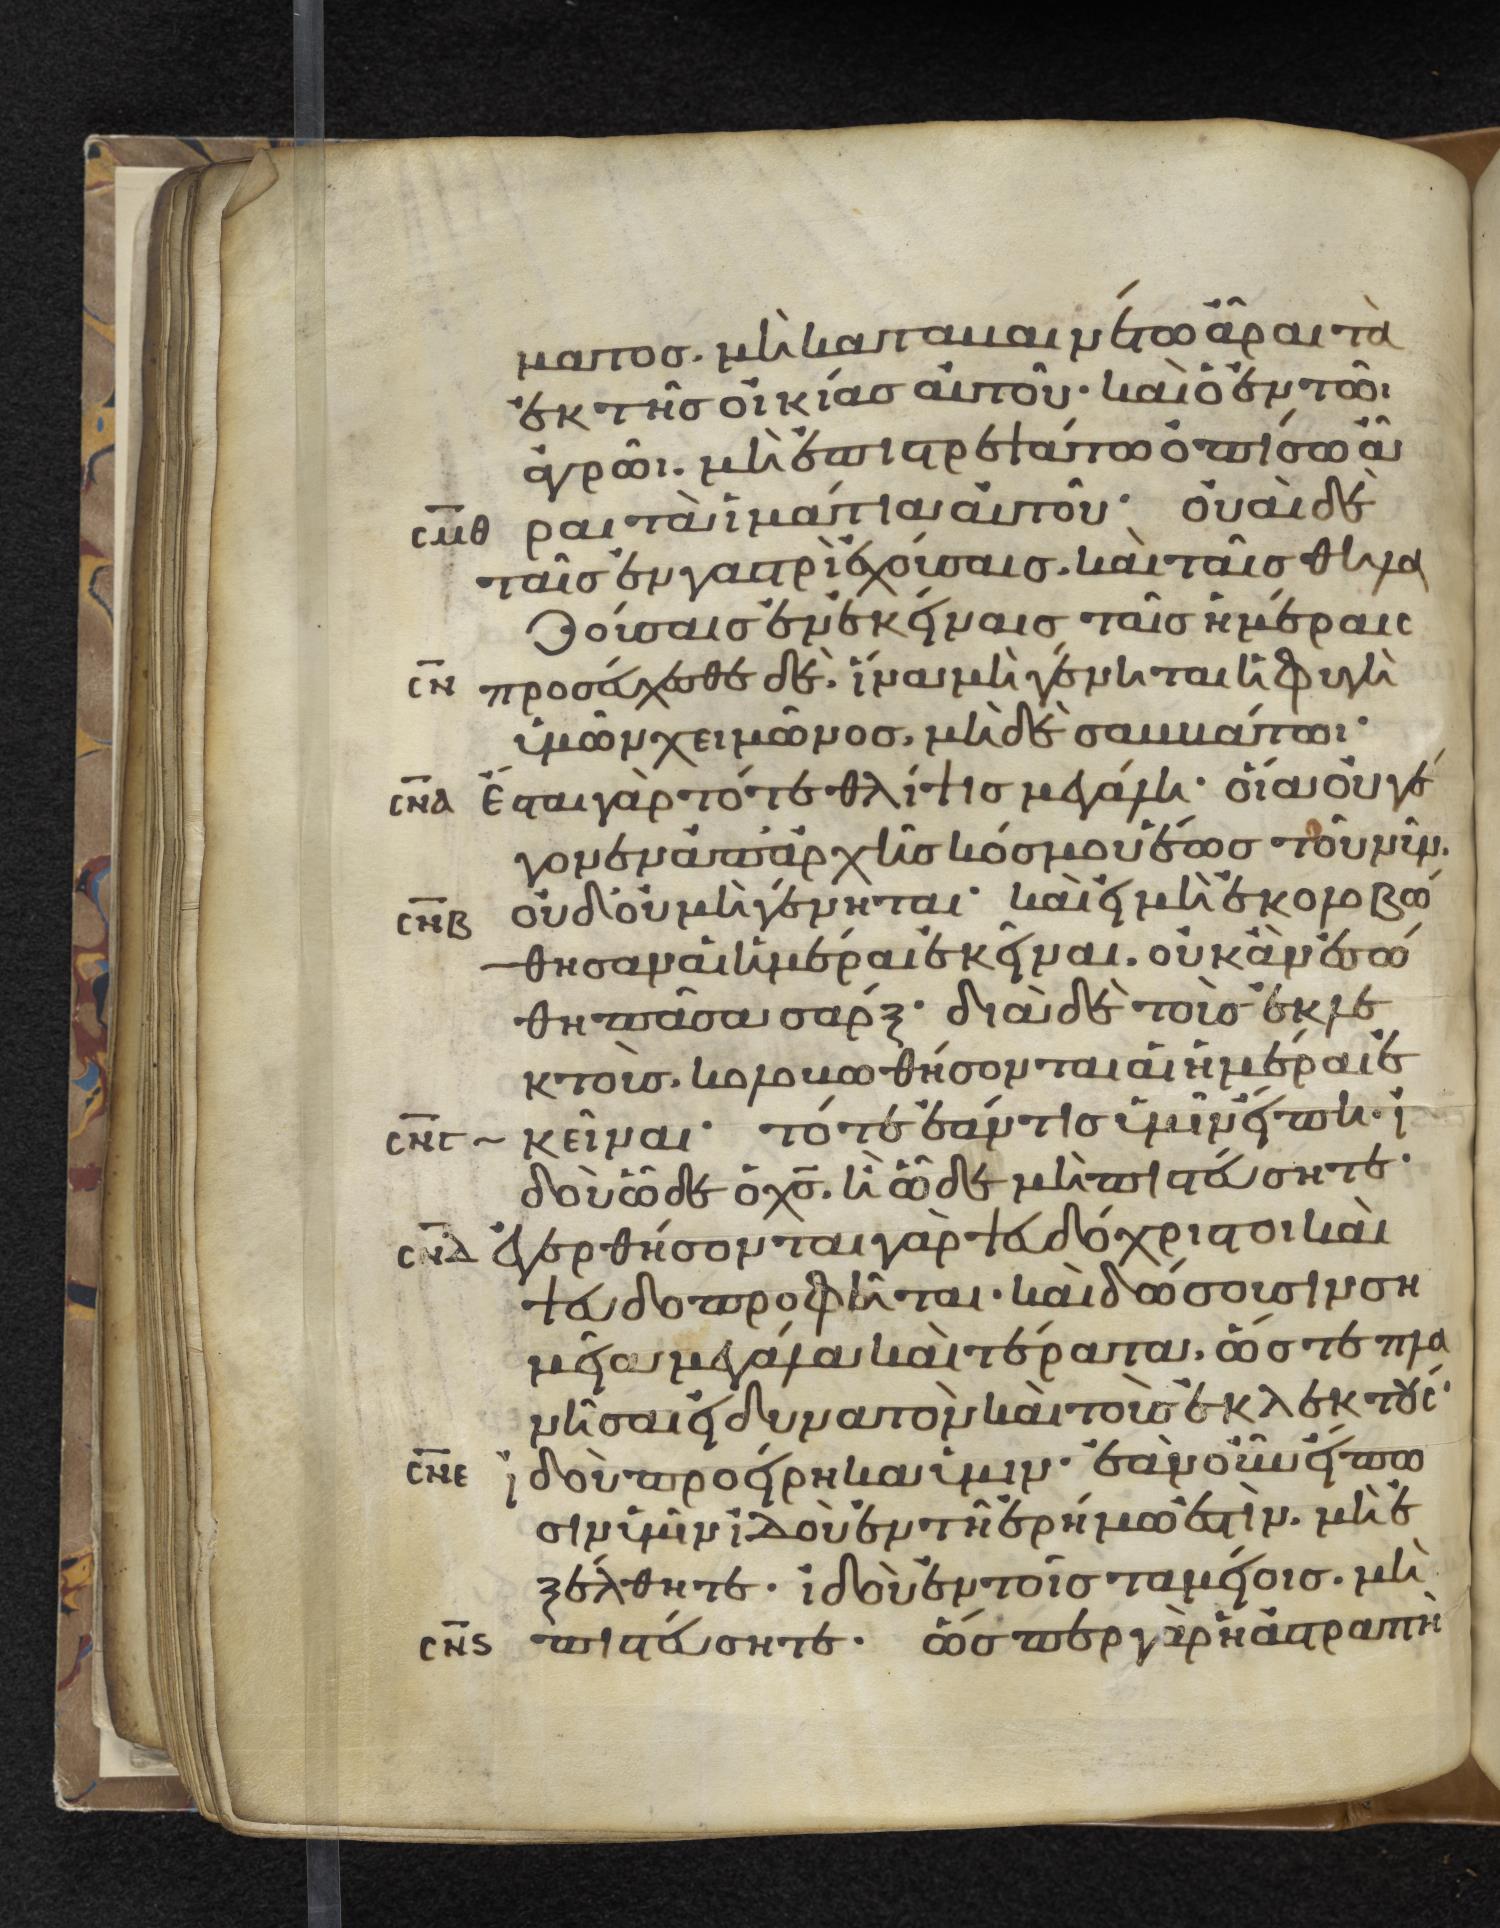 ματος. μὴ καταβαινέτω ἆραι τὰ
ἐκ τῆς οἰκίας αὐτοῦ· καὶ ὁ ἐν τῶι
ἀγρῶι. μὴ ἐπιστρεψάτω ὀπίσω ἆ
σμθ ραι τὰ ἱμάτια αὐτοῦ· οὐαὶ δὲ
ταῖς ἐν γαστρὶ ἐχούσαις. καὶ ταῖς θηλα
ζούσαις ἐν ἐκείναις ταῖς ἡμέραις
σν προσεύχεσθε δὲ. ἵνα μὴ γένηται ἡ φυγὴ
ὑμῶν χειμῶνος. μὴ δὲ σαββάτωι·
σνα Ἔσται γὰρ τότε θλίψις μεγάλη· οἵα οὐ γέ
γονεν ἀπ' ἀρχῆς κόσμου ἕως τοῦ νῦν.
σνβ οὐδ' οὐ μὴ γένηται· καὶ εἰ μὴ ἐκολοβώ
θησαν αἱ ἡμέραι ἐκεῖναι. οὐκ ἂν ἐσώ
θη πᾶσα σάρξ· διὰ δὲ τοὺς ἐκλε
κτοὺς. κολοβωθήσονται αἱ ἡμέραι ἐ
σνγ κεῖναι· τότε ἐάν τις ὑμῖν εἴπη. ἰ
δοὺ ὧδε ὁ χς. ἢ ὧδε μὴ πιστεύσητε·
σνδ ἐγερθήσονται γὰρ ψευδόχριστοι καὶ
ψευδοπροφῆται. καὶ δώσουσιν ση
μεῖα μεγάλα καὶ τέρατα. ὥστε πλα
νῆσαι εἰ δυνατὸν καὶ τοὺς ἐκλεκτούς·
σνε ἰδοὺ προείρηκα ὑμιν· ἐὰν οὖν εἴπω
σιν ὑμῖν ἰδοὺ ἐν τῆ ἐρήμω ἐστὶν. μὴ ἐ
ξέλθητε. ἰδοὺ ἐν τοῖς ταμείοις. μὴ
σνς πιστεύσητε. ὥσπερ γὰρ ἡ ἀστραπὴ